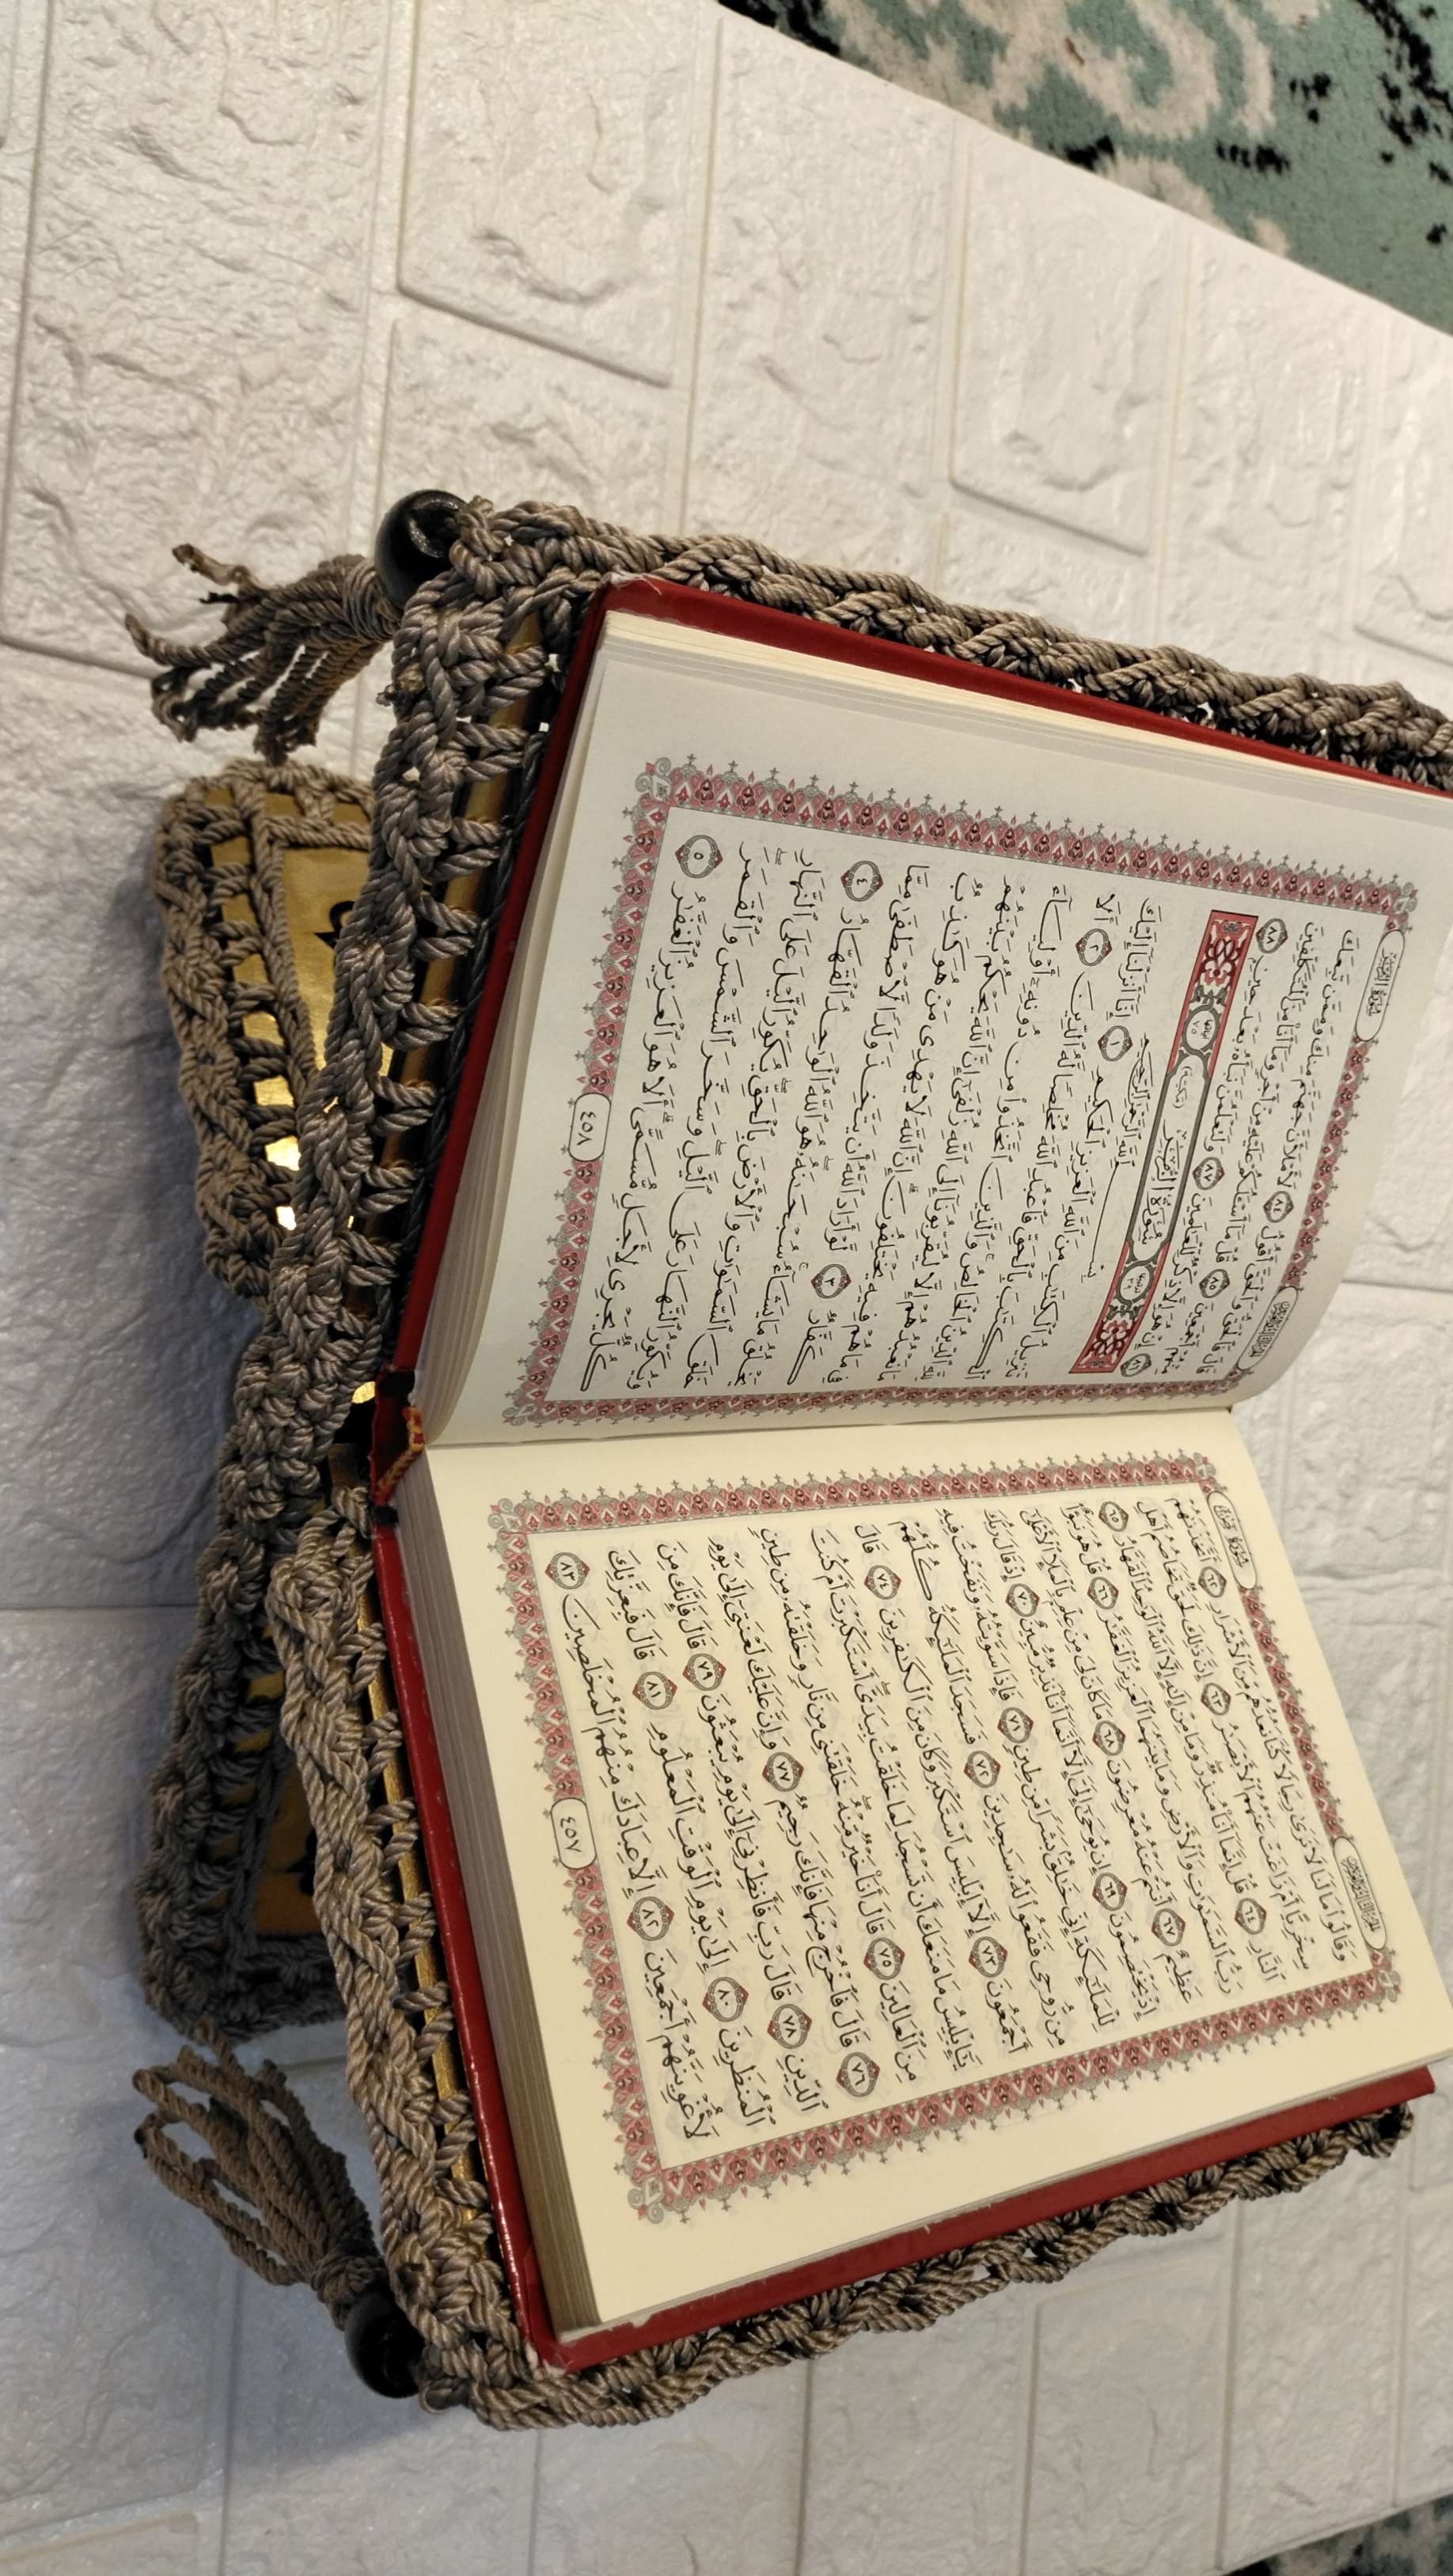 الجُزْءُ الثَّالِثُ وَالْعِشْرُونَ
سُورَةُ صٓ
وَقَالُوا۟ مَا لَنَا لَا نَرَىٰ رِجَالًا كُنَّا نَعُدُّهُم مِّنَ ٱلْأَشْرَارِ ٦٢ أَتَّخَذْنَٰهُمْ
سِخْرِيًّا أَمْ زَاغَتْ عَنْهُمُ ٱلْأَبْصَٰرُ ٦٣ إِنَّ ذَٰلِكَ لَحَقٌّ تَخَاصُمُ أَهْلِ
ٱلنَّارِ ٦٤ قُلْ إِنَّمَآ أَنَا۠ مُنذِرٌ وَمَا مِنْ إِلَٰهٍ إِلَّا ٱللَّهُ ٱلْوَٰحِدُ ٱلْقَهَّارُ ٦٥
رَبُّ ٱلسَّمَٰوَٰتِ وَٱلْأَرْضِ وَمَا بَيْنَهُمَا ٱلْعَزِيزُ ٱلْغَفَّٰرُ ٦٦ قُلْ هُوَ نَبَؤٌا۟
عَظِيمٌ ٦٧ أَنتُمْ عَنْهُ مُعْرِضُونَ ٦٨ مَا كَانَ لِىَ مِنْ عِلْمٍۭ بِٱلْمَلَإِ ٱلْأَعْلَىٰٓ
إِذْ يَخْتَصِمُونَ ٦٩ إِن يُوحَىٰٓ إِلَىَّ إِلَّآ أَنَّمَآ أَنَا۠ نَذِيرٌ مُّبِينٌ ٧٠ إِذْ قَالَ رَبُّكَ
لِلْمَلَٰٓئِكَةِ إِنِّى خَٰلِقٌۢ بَشَرًا مِّن طِينٍ ٧١ فَإِذَا سَوَّيْتُهُۥ وَنَفَخْتُ فِيهِ
مِن رُّوحِى فَقَعُوا۟ لَهُۥ سَٰجِدِينَ ٧٢ فَسَجَدَ ٱلْمَلَٰٓئِكَةُ كُلُّهُمْ
أَجْمَعُونَ ٧٣ إِلَّآ إِبْلِيسَ ٱسْتَكْبَرَ وَكَانَ مِنَ ٱلْكَٰفِرِينَ ٧٤ قَالَ
يَٰٓإِبْلِيسُ مَا مَنَعَكَ أَن تَسْجُدَ لِمَا خَلَقْتُ بِيَدَىَّ أَسْتَكْبَرْتَ أَمْ كُنتَ
مِنَ ٱلْعَالِينَ ٧٥ قَالَ أَنَا۠ خَيْرٌ مِّنْهُ خَلَقْتَنِى مِن نَّارٍ وَخَلَقْتَهُۥ مِن طِينٍ
٧٦ قَالَ فَٱخْرُجْ مِنْهَا فَإِنَّكَ رَجِيمٌ ٧٧ وَإِنَّ عَلَيْكَ لَعْنَتِىٓ إِلَىٰ يَوْمِ
ٱلدِّينِ ٧٨ قَالَ رَبِّ فَأَنظِرْنِىٓ إِلَىٰ يَوْمِ يُبْعَثُونَ ٧٩ قَالَ فَإِنَّكَ مِنَ
ٱلْمُنظَرِينَ ٨٠ إِلَىٰ يَوْمِ ٱلْوَقْتِ ٱلْمَعْلُومِ ٨١ قَالَ فَبِعِزَّتِكَ
لَأُغْوِيَنَّهُمْ أَجْمَعِينَ ٨٢ إِلَّا عِبَادَكَ مِنْهُمُ ٱلْمُخْلَصِينَ ٨٣
٤٥٧
الجُزْءُ الثَّالِثُ وَالْعِشْرُونَ
سُورَةُ الزُّمَرِ
قَالَ فَٱلْحَقُّ وَٱلْحَقَّ أَقُولُ ٨٤ لَأَمْلَأَنَّ جَهَنَّمَ مِنكَ وَمِمَّن تَبِعَكَ
مِنْهُمْ أَجْمَعِينَ ٨٥ قُلْ مَآ أَسْـَٔلُكُمْ عَلَيْهِ مِنْ أَجْرٍ وَمَآ أَنَا۠ مِنَ ٱلْمُتَكَلِّفِينَ
٨٦ إِنْ هُوَ إِلَّا ذِكْرٌ لِّلْعَٰلَمِينَ ٨٧ وَلَتَعْلَمُنَّ نَبَأَهُۥ بَعْدَ حِينٍۭ ٨٨
سُورَةُ الزُّمَرِ
بِسْمِ ٱللَّهِ ٱلرَّحْمَٰنِ ٱلرَّحِيمِ
تَنزِيلُ ٱلْكِتَٰبِ مِنَ ٱللَّهِ ٱلْعَزِيزِ ٱلْحَكِيمِ ١ إِنَّآ أَنزَلْنَآ إِلَيْكَ
ٱلْكِتَٰبَ بِٱلْحَقِّ فَٱعْبُدِ ٱللَّهَ مُخْلِصًا لَّهُ ٱلدِّينَ ٢ أَلَا
لِلَّهِ ٱلدِّينُ ٱلْخَالِصُ وَٱلَّذِينَ ٱتَّخَذُوا۟ مِن دُونِهِۦٓ أَوْلِيَآءَ
مَا نَعْبُدُهُمْ إِلَّا لِيُقَرِّبُونَآ إِلَى ٱللَّهِ زُلْفَىٰٓ إِنَّ ٱللَّهَ يَحْكُمُ بَيْنَهُمْ
فِى مَا هُمْ فِيهِ يَخْتَلِفُونَ إِنَّ ٱللَّهَ لَا يَهْدِى مَنْ هُوَ كَٰذِبٌ
كَفَّارٌ ٣ لَّوْ أَرَادَ ٱللَّهُ أَن يَتَّخِذَ وَلَدًا لَّٱصْطَفَىٰ مِمَّا
يَخْلُقُ مَا يَشَآءُ سُبْحَٰنَهُۥ هُوَ ٱللَّهُ ٱلْوَٰحِدُ ٱلْقَهَّارُ ٤
خَلَقَ ٱلسَّمَٰوَٰتِ وَٱلْأَرْضَ بِٱلْحَقِّ يُكَوِّرُ ٱلَّيْلَ عَلَى ٱلنَّهَارِ
وَيُكَوِّرُ ٱلنَّهَارَ عَلَى ٱلَّيْلِ وَسَخَّرَ ٱلشَّمْسَ وَٱلْقَمَرَ
كُلٌّ يَجْرِى لِأَجَلٍ مُّسَمًّى أَلَا هُوَ ٱلْعَزِيزُ ٱلْغَفَّٰرُ ٥
٤٥٨